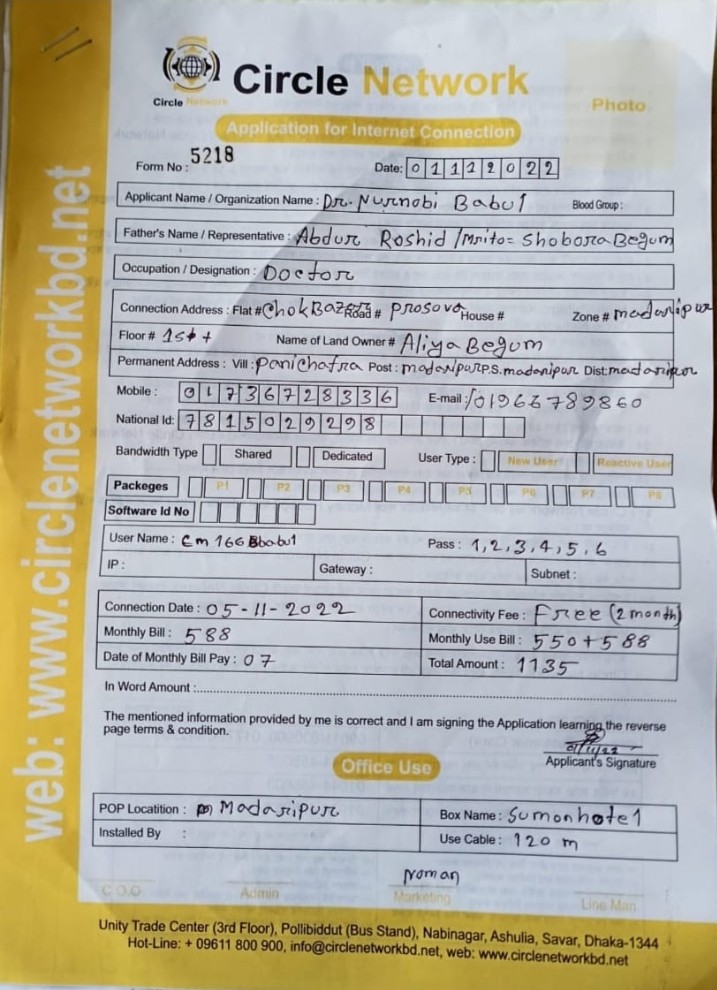 Circle Network
Circle Network
Photo
Application for Internet Connection
Form No : 5218
Date: 01112022
Applicant Name / Organization Name : Dr. Nurnobi Babul Blood Group :
Father's Name / Representative : Abdur Roshid / Mrito= Shobora Begum
Occupation / Designation : Doctor
Connection Address : Flat # Chok Bazar Road # prosova House # Zone # madaripur
Floor # 1st + Name of Land Owner # Aliya Begum
Permanent Address : Vill : panichatra Post : madaripur P.S. madaripur Dist: madaripur
Mobile : 01736728336 E-mail : /01966789860
National Id: 7815029298
Bandwidth Type Shared Dedicated User Type : New User Reactive User
Packeges P1 P2 P3 P4 P5 P6 P7 P8
Software Id No
User Name : Cm166Bbabul Pass : 1,2,3,4,5,6
IP : Gateway : Subnet :
Connection Date : 05-11-2022 Connectivity Fee : Free (2 month)
Monthly Bill : 588 Monthly Use Bill : 550+588
Date of Monthly Bill Pay : 07 Total Amount : 1135
In Word Amount :
The mentioned information provided by me is correct and I am signing the Application learning the reverse
page terms & condition.
Applicant's Signature
Office Use
POP Locatition : Madaripur Box Name : Sumonhotel
Installed By : Use Cable : 120 m
Noman
C.O.O Admin Marketing Line Man
Unity Trade Center (3rd Floor), Pollibiddut (Bus Stand), Nabinagar, Ashulia, Savar, Dhaka-1344
Hot-Line: + 09611 800 900, info@circlenetworkbd.net, web: www.circlenetworkbd.net
web: www.circlenetworkbd.net